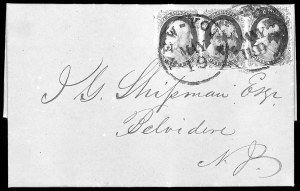 NEW-YORK
MAY
19
J G Shipman Esqr
Belvidere
N. J.